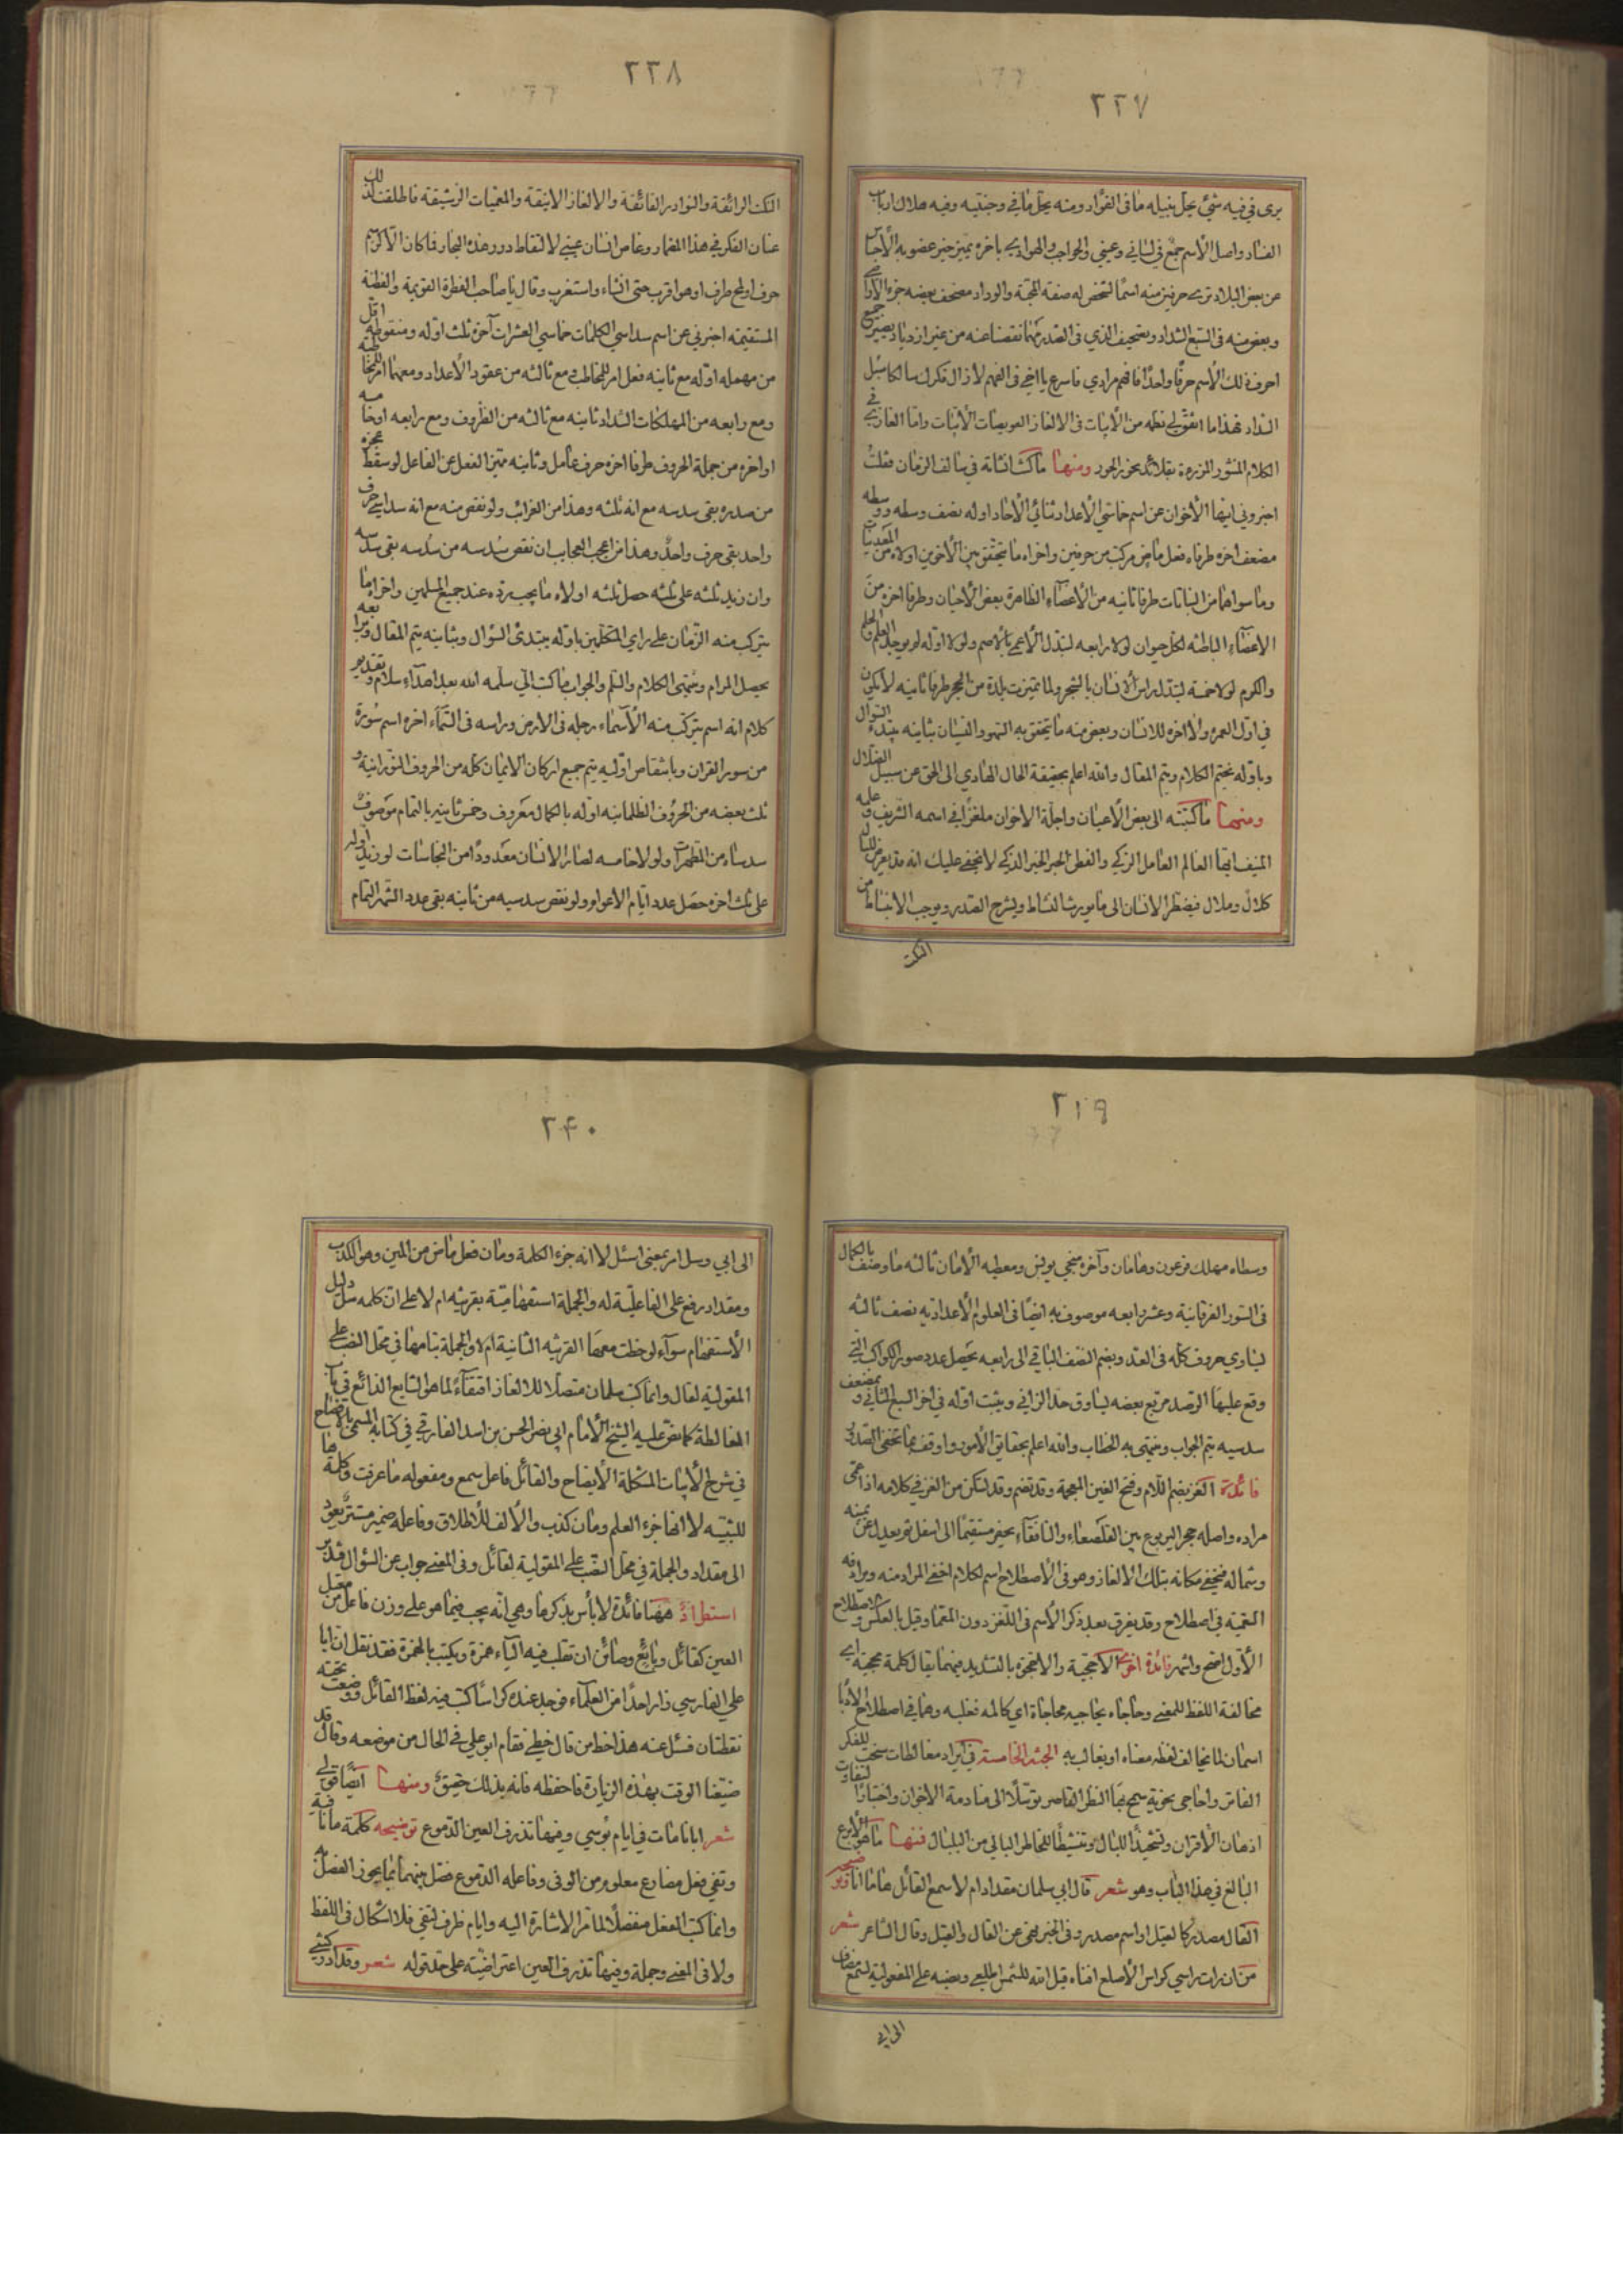 ٢٢٧
يرى في فيه شئ يحل بنيله ما في الفؤاد ومنه يحل ما في وجنتيه وفيه هلاك ارباب
الفساد واصل الاسم جمع في لساني وعيني والحواجب والهوادي باخره يميز خير عضو به الأجناس
عن بعض البلاد ترى حرفين منه اسما لشخص له صفة المحبة والوداد مصحف بعضه جزء الأراضي
وبعض منه في السبع الشداد وتصحيف الذي في الصدر مهما نقصنا عنه من غير ازدياد يصير جميع
احرف ذلك الأسم حرفا واحدا فافهم مرادي فاسرع يا اخي في الفهم لا زال فكرك سالكا سبل
السداد فهذا ما اتفق لي نظمه من الأبيات في الالغاز العويصات الأبيات واما الغازي في
الكلام المنثور المزرية بقلائد نحور الحور ومنها ما كنت انشأته في سالف الزمان فقلت
اخبروني ايها الأخوان عن اسم خماسي الأعداد ثنائي الأحاد اوله نصف وسطه ووسطه
مضعف اخره طرفاه فعل ماض مركب من حرفين واخراه ما يتحقق بين الأخوين اولاه من المعدنيات
وما سواهما من النباتات طرفا ثانيه من الأعضاء الظاهرة لبعض الأحيان وطرفا اخره من
الاعضاء الباطنه لكل حيوان لولا رابعه لتبدل الأعمى بالأصم ولولا اوله لم يوجد العلم والحلم
والكرم لولا خمسه لتبدل راس الأنسان بالشجر ولما تميزت بلدة من الحجر طرفا ثانيه لا يكون
في اول العمر ولا اخره للانسان وبعض منه ما يتحقق به السهو والنسيان بثانيه يبتدء السؤال
وباوله نختم الكلام ويتم المقال والله اعلم بحقيقة الحال الهادي الى الحق عن سبيل الضلال
ومنها ما كتبته الى بعض الأعيان واجلة الاخوان ملغزا في اسمه الشريف وعلمه
المنيف ايها العالم العامل الزكي والفطن الحبر الخبير الذكي لا يخفى عليك انه قد يعرض للبال
كلال وملال فيضطر الانسان الى ما يورث النشاط ويشرح الصدر ويوجب الانبساط من
النكت
٢٢٨
النكت الرائقة والنوادر الفائقة والالغاز الانيقة والمعميات الرشيقة فاطلقت لذلك
عنان الفكر في هذا المضمار وغاص انسان عيني لالتقاط درر هذه البحار فما كان الا كرسم
حرف او لمح طرف او هو اقرب حتى انشاء واستغرب وقال يا صاحب الفطرة القويمة والفطنة
المستقيمه اخبرني عن اسم سداسي الكلمات خماسي العشرات آخره ثلث اوله ومنقوطه اقل
من مهمله اوله مع ثانيه فعل امر للمخاطب ومع ثالثه من عقود الأعداد ومعهما امر للمخاطبه
ومع رابعه من المهلكات الشداد ثانيه مع ثالثه من الظروف ومع رابعه او خامسه
او اخره من جملة الحروف طرفا اخره حرف عامل وثانيه مميز الفعل عن الفاعل لو سقط عجزه
من صدره بقي سدسه مع انه ثلثه وهذا من الغرائب ولو نقص منه مع انه سداسي حرف
واحد بقي حرف واحد وهذا من اعجب العجايب ان نقص سدسه من سدسه بقي سدسه
وان زيد ثلثه على ثلثه حصل ثلثه اولاه ما يجب رده عند جميع المسلمين واخراه ما
يتركب منه الزمان على راي المتكلمين باوله يبتدئ السؤال وبثانيه يتم المقال وبرابعه
يحصل المرام وينتهي الكلام والسلم والجواب ما كتب الي سلمه الله بعد اهداء سلام وتقديم
كلام انه اسم يتركب منه الأسماء رجله في الارض وراسه في السماء اخره اسم سورة
من سور القران وبانتقاص اوليه يتم جميع اركان الايمان كله من الحروف النورانية و
ثلث بعضه من الحروف الظلمانيه اوله بالكمال معروف وخمس ثانيه بالتمام موصوف
سدساه من المطهرات ولولا خامسه لصار الانسان معدودا من النجاسات لو زيد اوله
على ثلث اخره حصل عدد ايام الاعوام ولو نقص سدسيه من ثانيه بقي عدد الشهر التمام
٢٣٩
وسطاه مهلك فرعون وهامان وآخره منجي يونس ومعطيه الأمان ثالثه ما وصف بالكمال
في السور الفرقانية وعشر رابعه موصوف به ايضا في العلوم الأعدادية نصف ثالثه
ليساوي حروف كله في العدد ويضم النصف الباقي الى رابعه يحصل عدد صور الكواكب التي
وقع عليها الرصد مربع بعضه ليساوق حد الزاني ويثبت اوله في اخر السبع المثاني و بمضعف
سدسيه يتم الجواب وينتهي به الخطاب والله اعلم بحقايق الأمور واوقف بما تخفي الصدور
فائدة اللغز بضم اللام وفتح الغين المعجمة وقد تضم وقد تسكن من الغز في كلامه اذا عمى
مراده واصله جحر اليربوع بين القاصعاء والنافقاء يحفر مستقيما الى اسفل ثم يعدل عن يمينه
وشماله فيخفي مكانه بتلك الالغاز وهو في الأصطلاح اسم لكلام اخفي المراد منه ويرادفه
التعميه في اصطلاح وقد يفرق بعد ذكر الأسم في اللغز دون المعمى وقيل بالعكس والاصطلاح
الأول اصح واشهر فائدة اخرى الأحجية والاحجوة بالتشديد فيهما يقال كلمة محجية اي
مخالفة اللفظ للمعنى وحاجاه يحاجيه محاجاة اي كالمه فغلبه وهما في اصطلاح الأدبا
اسمان لما يخالف لفظه معناه او يغالب به الجثة الخامسة في ايراد مغالطات سنحت للفكر
الفاتر واحاجي نحوية سمح بها النظر القاصر توسلا الى منادمة الاخوان واختبارا لتفاوت
اذهان الأقران وتشحيذا للبال وتنشيطا للخاطر البالي من البلبال فمنها ما هو الأبرع
البالغ في هذا الباب وهو شعر قال ابي سلمان مقدادام لا سمع القائل ها مانا توضيحه
القال مصدر كالقيل او اسم مصدر وفي الخبر نهى عن القال والقيل وقال الشاعر شعر
من ان رات راسي كراس الأصلع افناه قيل الله للشمس اطلعي ونصبه على المفعولية لسمع مضاف
الى ابي
٢٤٠
الى ابي وسل امر بمعنى اسئل لا انه جزء الكلمة ومان فعل ماض من المين وهو الكذب
ومقداد رفع على الفاعلية له والجملة استفهامية بقرينه ام لا على ان كلمه سل دليل
الأستفهام سواء لوحظت معها القرينه الثانية ام لا والجملة بتمامها في محل النصب على
المقولية لقال وانما كتب سلمان متصلا للالغاز اقتفاء لما هو الشايع الذائع في باب
المغالطة كما نص عليه الشيخ الأمام ابي نصر الحسن بن اسد الفارقي في كتابه المسمى بالافصاح
في شرح الأبيات المشكلة الأيضاح والقائل فاعل سمع ومفعوله ما عرفت وكلمة ها
للتنبيه لا انها جزء العلم ومان كذب والألف للأطلاق وفاعله ضمير مستتر يعود
الى مقداد والجملة في محل النصب على المقولية لقائل وفي المعنى جواب عن السؤال فتدبر
استطراد ههنا فائدة لا بأس بذكرها وهي انه يجب فيما هو على وزن فاعل من معتل
العين كقائل وبايع وصائن ان تقلب فيه الياء همزة ويكتب بالهمزة فقد نقل ان ابا
علي الفارسي زار احدا من العلماء فوجد عنده كراسا كتب فيه لفظ القائل ووضعت تحته
نقطتان فسئل عنه هذا خط من قال خطي فقام ابو علي في الحال من موضعه وقال قد
ضيعنا الوقت بهذه الزيارة فاحفظه فانه بذلك حقيق ومنها ايضا قولي
شعر ابانا مات في ايام بؤسي وفيها تذرف العين الدموع توضيحه كلمة ما نافية
وتفي فعل مضارع معلوم من الوفى وفاعله الدموع فصل بينهما بما يجوز الفصل به
وانما كتب الفعل منفصلا لما مر الاشارة اليه وايام ظرف لتفي فلا اشكال في اللفظ
ولا في المعنى وجملة وفيها تذرف العين اعتراضية على حد قوله شعر وقد ادركتني